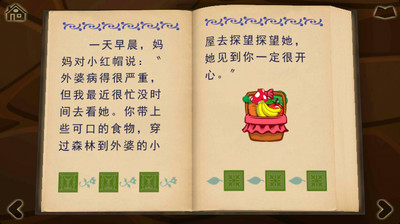 一天早晨，妈
妈对小红帽说：“
外婆病得很严重，
但我最近很忙没时
间去看她。你带上
些可口的食物，穿
过森林到外婆的小
屋去探望探望她，
她见到你一定很开
心。”